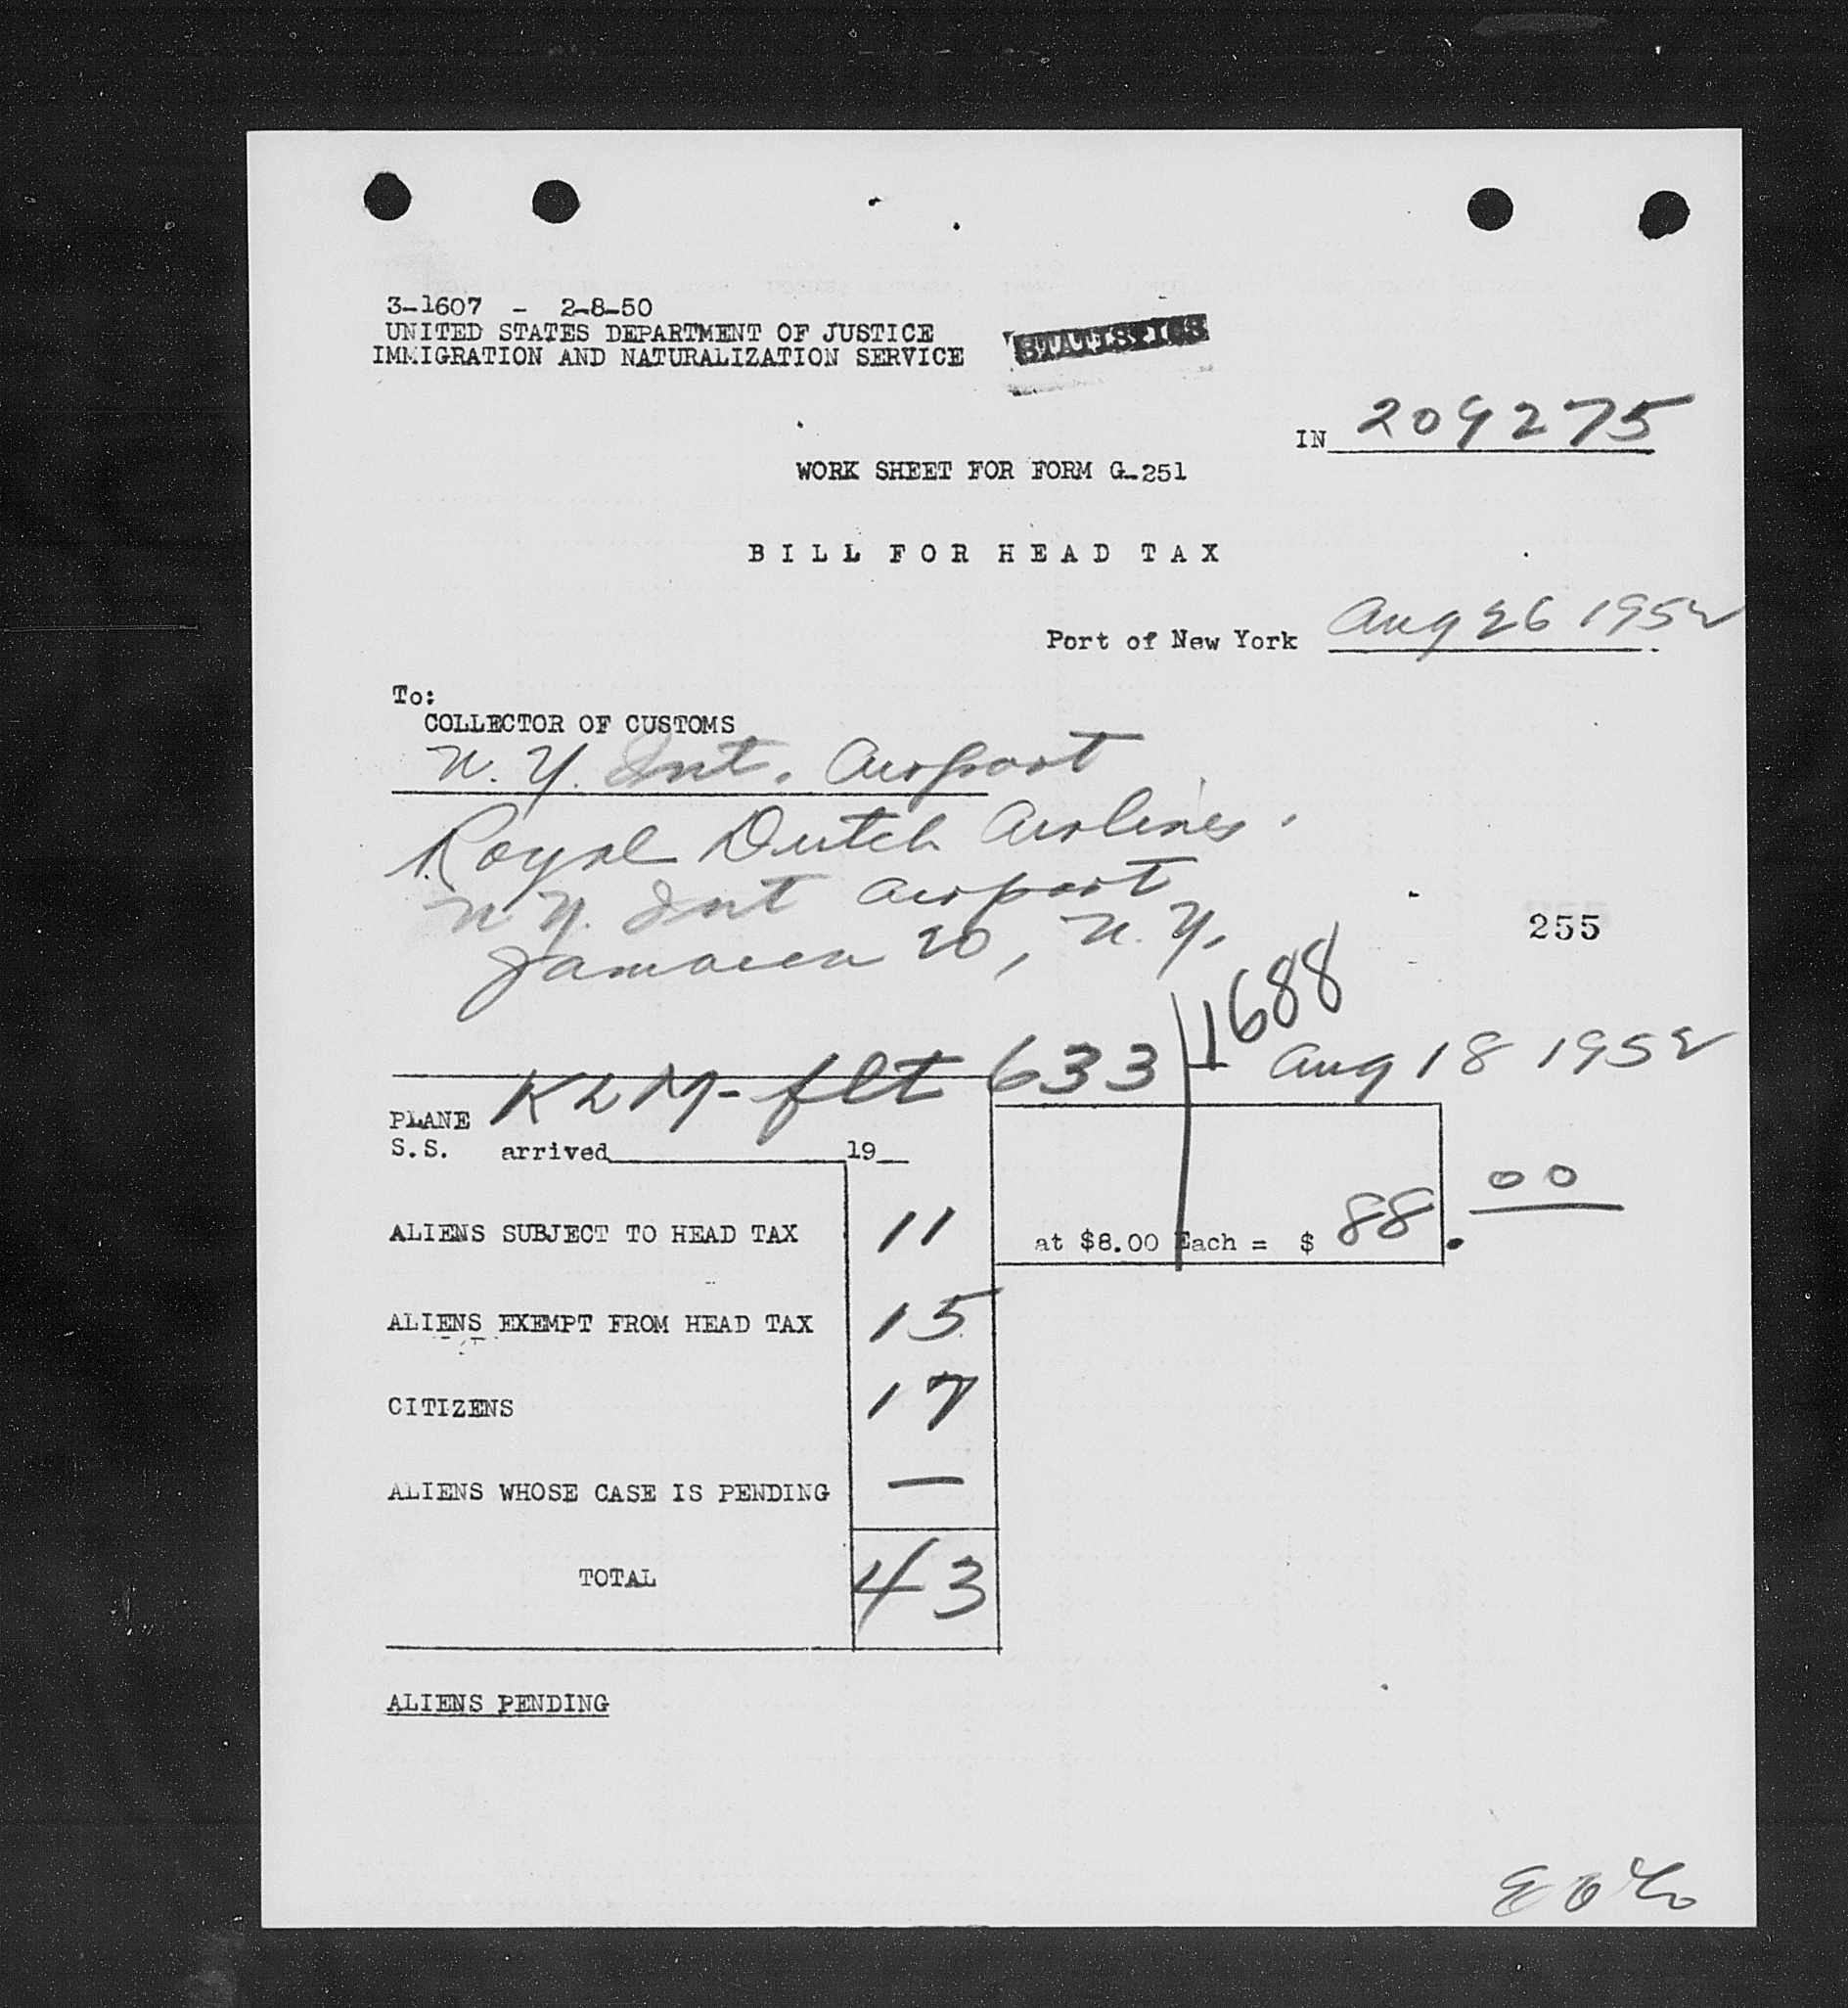 3-1607 - 2-8-50
UNITED STATES DEPARTMENT OF JUSTICE
IMMIGRATION AND NATURALIZATION SERVICE
STATISTICS
IN 209275
WORK SHEET FOR FORM G-251
BILL FOR HEAD TAX
Port of New York Aug 26 1952.
To:
COLLECTOR OF CUSTOMS
N. Y. Int. Airport
Royal Dutch Airlines.
N Y. Int Airport
Jamaica 20, N. Y.
255
1688
KLM - flt 633 Aug 18 1952
PLANE
S.S. arrived 19
ALIENS SUBJECT TO HEAD TAX 11 at $8.00 Each = $ 88.00
ALIENS EXEMPT FROM HEAD TAX 15
CITIZENS 17
ALIENS WHOSE CASE IS PENDING —
TOTAL 43
ALIENS PENDING